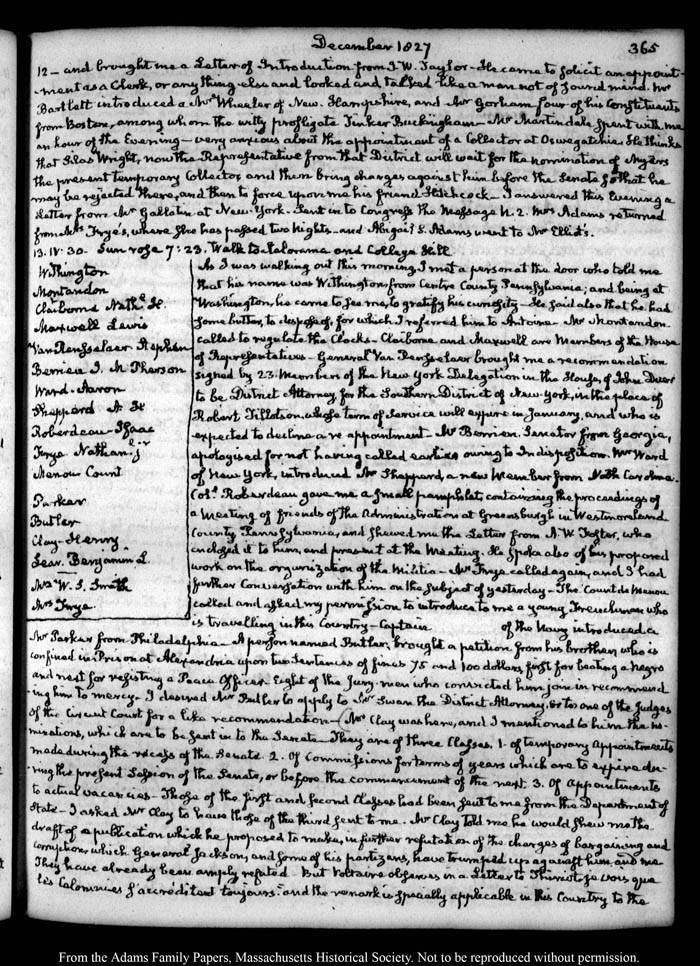 December 1827
365
12 – and brought me a Letter of Introduction from J. W. Taylor – He came to solicit an appoint-
-ment as a Clerk, or any thing else and looked and talked like a man not of sound mind. Mr
Bartlett introduced a Mr Wheeler of New Hampshire, and Mr Gorham four of his Constituents
from Boston, among whom the witty profligate Tinker Buckingham – Mr Martindale spent with me
an hour of the Evening – very anxious about the appointment of a Collector at Oswegatchie. He thinks
that Silas Wright, now the Representative from that District will wait for the nomination of Myers
the present temporary Collector and then bring charges against him before the Senate so that he
may be rejected there, and then to force upon me his friend Hitchcock – I answered this Evening a
Letter from Mr Gallatin at New-York. Sent in to Congress the Message N. 2. Mrs Adams returned
from Mrs Frye's, where she has passed two Nights – and Abigail S. Adams went to Mr Elliot's.
13. IV: 30. Sun rose 7:23. Walk to Kalorama and College Hill.
Withington
Montandon
Claiborne Nathl. H.
Maxwell Lewis
Van Rensselaer Stephen
Berrien J. McPherson
Ward. Aaron
Sheppard A. H
Roberdeau – Isaac
Frye Nathanl. Jr
Menou Count
Parker
Butler
Clay – Henry
Lear. Benjamin L.
Mrs W. S. Smith
Mrs Frye.
As I was walking out this morning, I met a person at the door who told me
that his name was Withington from Centre County Pennsylvania; and being at
Washington, he came to see me, to gratify his curiosity – He said also that he had
some butter, to dispose of, for which I referred him to Antoine – Mr Montandon
called to regulate the Clocks – Claiborne and Maxwell are Members of the House
of Representatives – General Van Rensselaer brought me a recommendation
signed by 23. Members of the New York Delegation in the House, of John Duer
to be District Attorney for the Southern District of New-York, in the place of
Robert Tillotson, whose term of service will expire in January, and who is
expected to decline a re appointment – Mr Berrien. Senator from Georgia,
apologised for not having called earlier owing to Indisposition. Mr Ward
of New York, introduced Mr Sheppard, a new Member from North Carolina.
Coll. Roberdeau gave me a small pamphlet, containing the proceedings of
a Meeting of friends of the Administration at Greensburgh in Westmoreland
County Pennsylvania, and shewed me the Letter from A. W. Foster, who
enclosed it to him, and present at the Meeting. He spoke also of his proposed
work on the organization of the Militia – Mr Frye called again, and I had
further Conversation with him on the subject of yesterday – The Count de Menou
called and asked my permission to introduce to me a young Frenchman who
is travelling in this Country – Captain of the Navy introduced a
Mr Parker from Philadelphia – A person named Butler, brought a petition from his brother, who is
confined in Prison at Alexandria upon two Sentences of fines 75 and 100 dollars first for beating a negro
and next for resisting a Peace Officer. Eight of the Jury-men who convicted him join in recommend
ing him to mercy – I desired Mr Butler to apply to Mr Swan the District Attorney, or to one of the Judges
of the Circuit Court for a like recommendation – Mr Clay was here, and I mentioned to him the no-
minations, which are to be sent in to the Senate – They are of three Classes. 1. of temporary Appointments
made during the recess of the Senate. 2. Of Commissions for terms of years which are to expire du-
-ring the present Session of the Senate, or before the commencement of the next. 3. Of Appointments
to actual vacancies – Those of the first and second Classes had been sent to me from the Department of
State – I asked Mr Clay to have those of the third sent to me. Mr Clay told me he would shew me the
draft of a publication which he proposed to make, in further refutation of the charges of bargaining and
corruption which General Jackson, and some of his partizans, have trumped up against him, and me
They have already been amply refuted – But Voltaire observes in a Letter to Thiriot, je vois que
les Calomnies s'accreditent toujours – and the remark is specially applicable in this Country to the
From the Adams Family Papers, Massachusetts Historical Society. Not to be reproduced without permission.